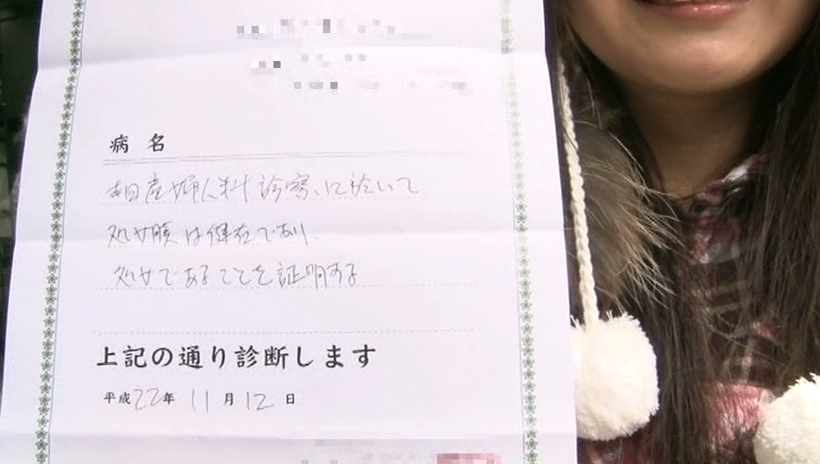 病名
本日産婦人科診察に於いて
処女膜は健在であり、
処女であることを証明する
上記の通り診断します
平成22年 11月12日